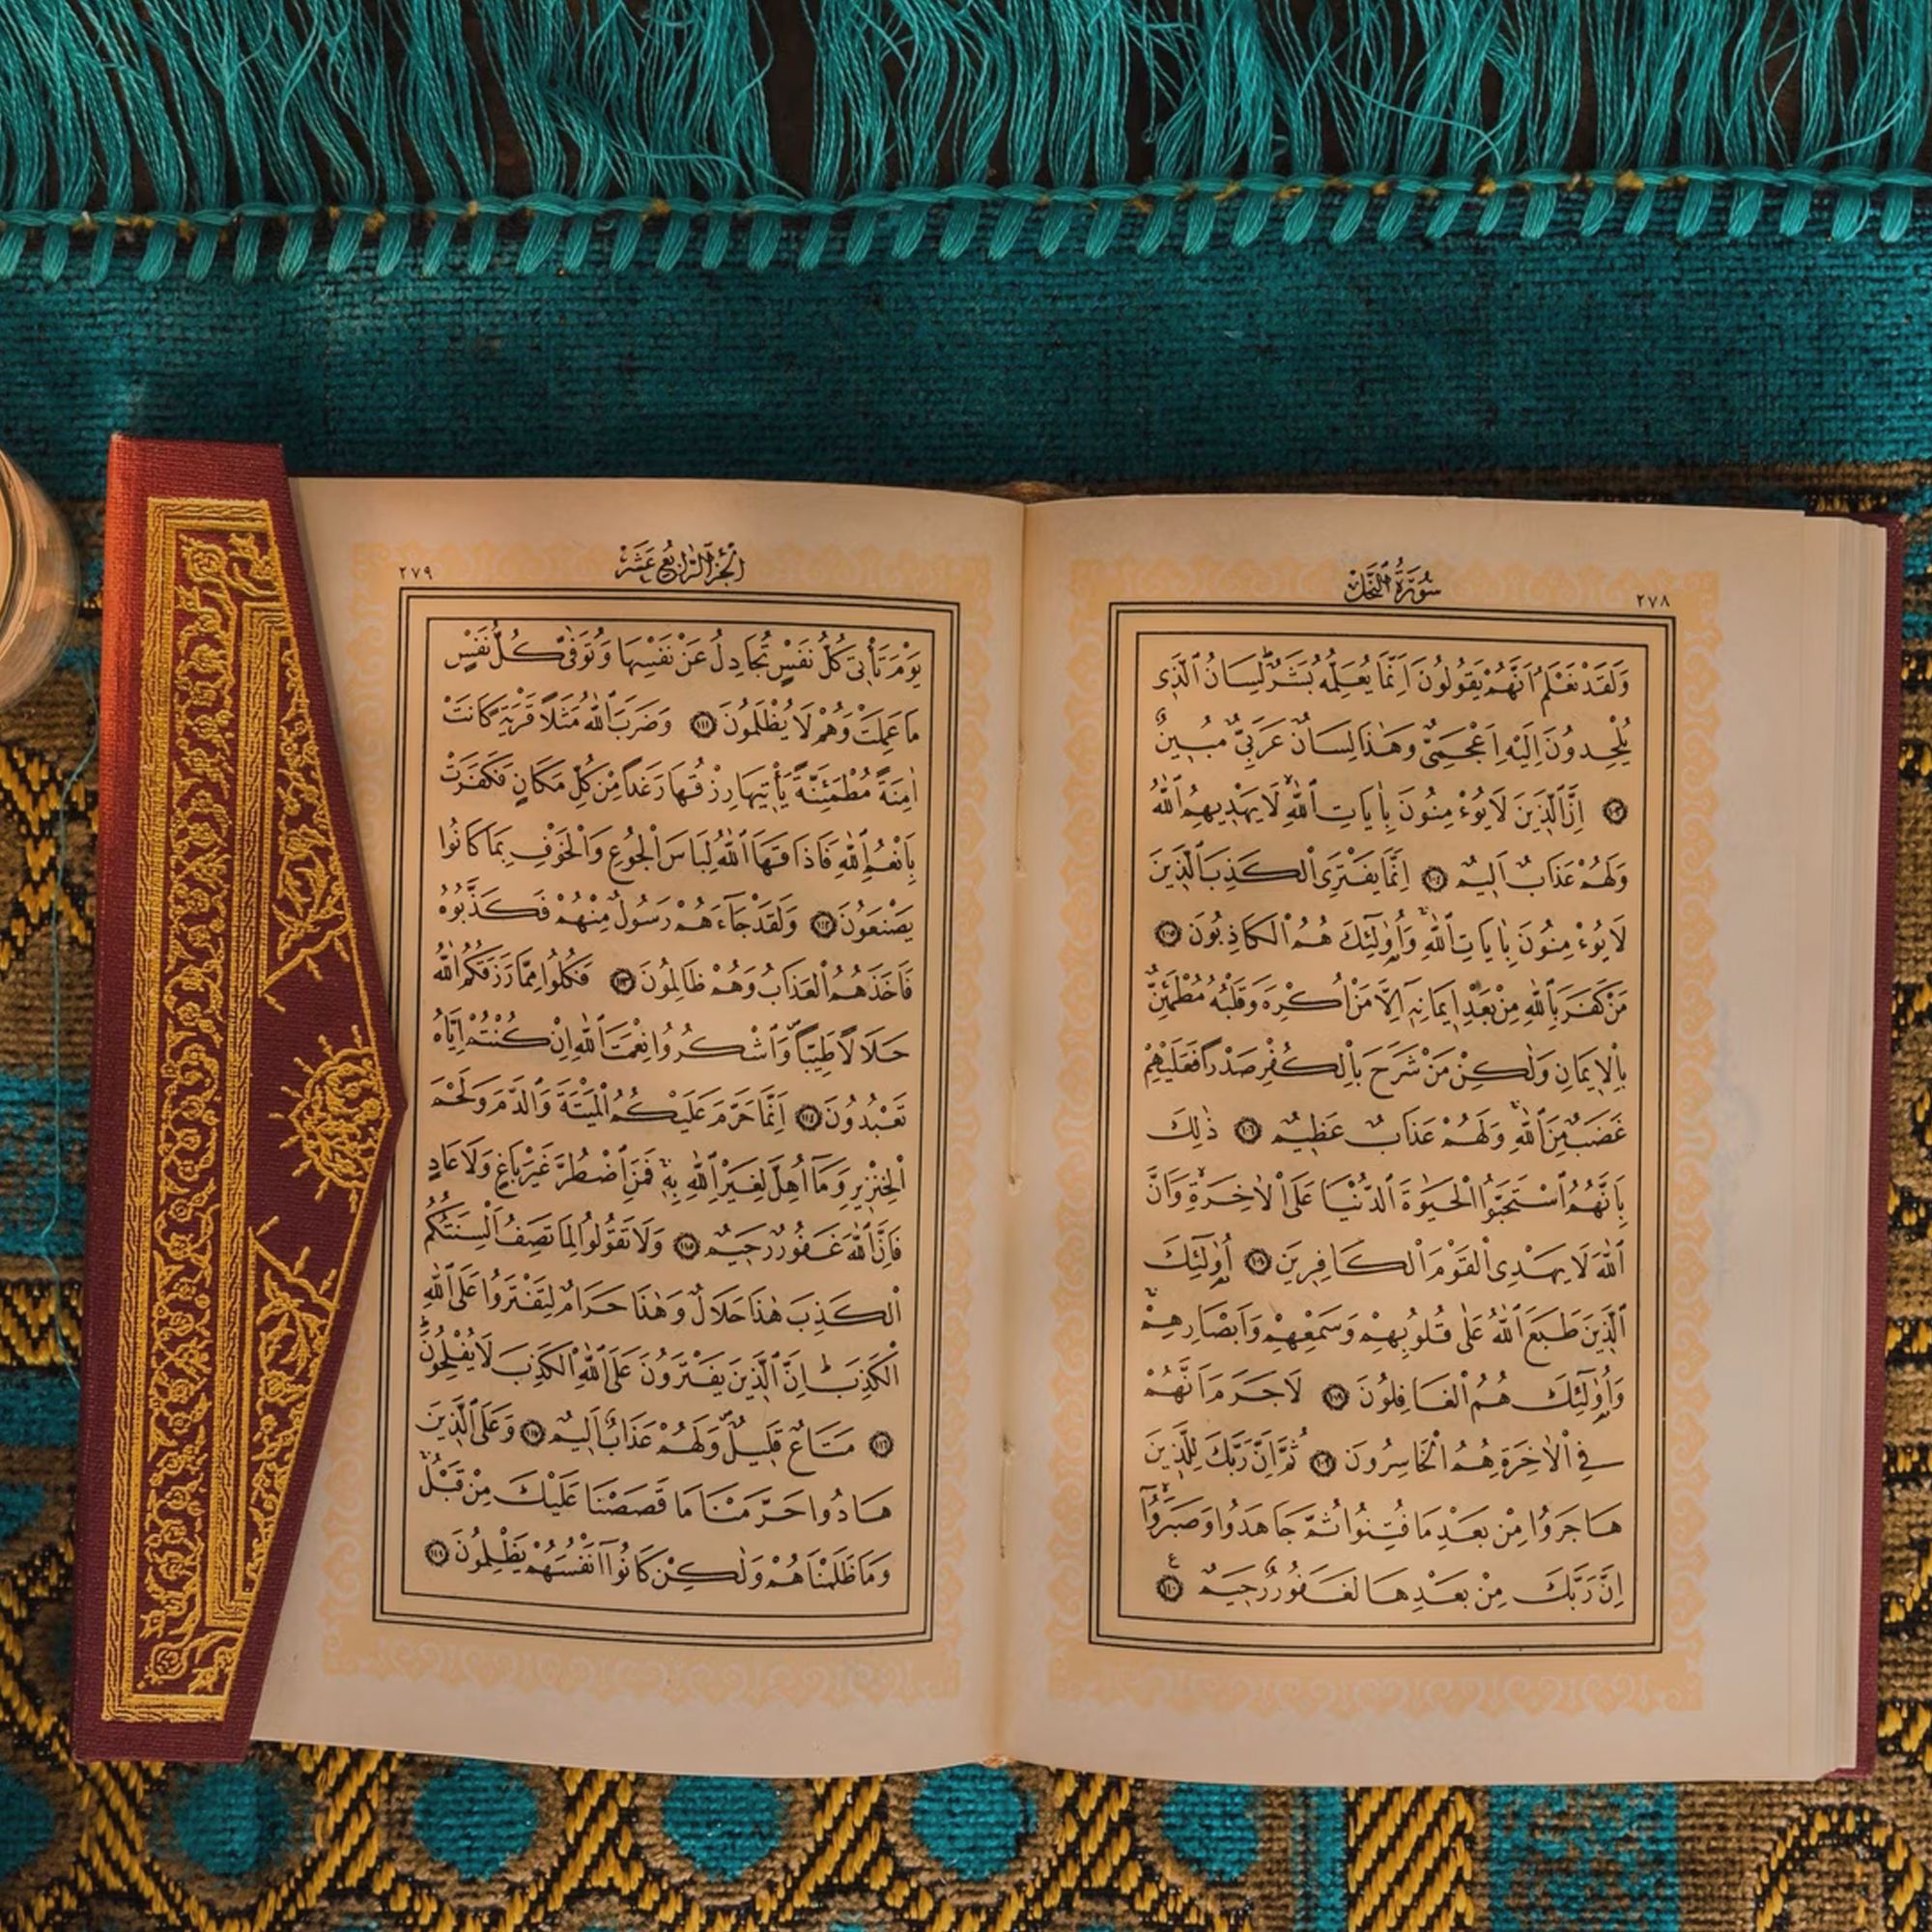 سُورَةُ ٱلنَّحْلِ
٢٧٨
وَلَقَدْ نَعْلَمُ اَنَّهُمْ يَقُولُونَ اِنَّمَا يُعَلِّمُهُ بَشَرٌ لِسَانُ ٱلَّذِى
يُلْحِدُونَ اِلَيْهِ اَعْجَمِىٌّ وَهٰذَا لِسَانٌ عَرَبِىٌّ مُبِينٌ
﴿١٠٣﴾ اِنَّ ٱلَّذِينَ لَا يُؤْمِنُونَ بِاٰيَاتِ ٱللّٰهِ لَا يَهْدِيهِمُ ٱللّٰهُ
وَلَهُمْ عَذَابٌ اَلِيمٌ ﴿١٠٤﴾ اِنَّمَا يَفْتَرِى ٱلْكَذِبَ ٱلَّذِينَ
لَا يُؤْمِنُونَ بِاٰيَاتِ ٱللّٰهِ وَاُو۬لٰٓئِكَ هُمُ ٱلْكَاذِبُونَ ﴿١٠٥﴾
مَنْ كَفَرَ بِٱللّٰهِ مِنْ بَعْدِ اِيمَانِهِٓ اِلَّا مَنْ اُكْرِهَ وَقَلْبُهُ مُطْمَئِنٌّ
بِٱلْاِيمَانِ وَلٰكِنْ مَنْ شَرَحَ بِٱلْكُفْرِ صَدْرًا فَعَلَيْهِمْ
غَضَبٌ مِنَ ٱللّٰهِ وَلَهُمْ عَذَابٌ عَظِيمٌ ﴿١٠٦﴾ ذٰلِكَ
بِاَنَّهُمُ ٱسْتَحَبُّوا ٱلْحَيٰوةَ ٱلدُّنْيَا عَلَى ٱلْاٰخِرَةِ وَاَنَّ
ٱللّٰهَ لَا يَهْدِى ٱلْقَوْمَ ٱلْكَافِرِينَ ﴿١٠٧﴾ اُو۬لٰٓئِكَ
ٱلَّذِينَ طَبَعَ ٱللّٰهُ عَلٰى قُلُوبِهِمْ وَسَمْعِهِمْ وَاَبْصَارِهِمْ
وَاُو۬لٰٓئِكَ هُمُ ٱلْغَافِلُونَ ﴿١٠٨﴾ لَا جَرَمَ اَنَّهُمْ
فِى ٱلْاٰخِرَةِ هُمُ ٱلْخَاسِرُونَ ﴿١٠٩﴾ ثُمَّ اِنَّ رَبَّكَ لِلَّذِينَ
هَاجَرُوا مِنْ بَعْدِ مَا فُتِنُوا ثُمَّ جَاهَدُوا وَصَبَرُوٓا
اِنَّ رَبَّكَ مِنْ بَعْدِهَا لَغَفُورٌ رَحِيمٌ ﴿١١٠﴾ ع
ٱلْجُزْءُ ٱلرَّابِعُ عَشَرَ
٢٧٩
يَوْمَ تَأْتِى كُلُّ نَفْسٍ تُجَادِلُ عَنْ نَفْسِهَا وَتُوَفّٰى كُلُّ نَفْسٍ
مَا عَمِلَتْ وَهُمْ لَا يُظْلَمُونَ ﴿١١١﴾ وَضَرَبَ ٱللّٰهُ مَثَلًا قَرْيَةً كَانَتْ
اٰمِنَةً مُطْمَئِنَّةً يَأْتِيهَا رِزْقُهَا رَغَدًا مِنْ كُلِّ مَكَانٍ فَكَفَرَتْ
بِاَنْعُمِ ٱللّٰهِ فَاَذَاقَهَا ٱللّٰهُ لِبَاسَ ٱلْجُوعِ وَٱلْخَوْفِ بِمَا كَانُوا
يَصْنَعُونَ ﴿١١٢﴾ وَلَقَدْ جَٓاءَهُمْ رَسُولٌ مِنْهُمْ فَكَذَّبُوهُ
فَاَخَذَهُمُ ٱلْعَذَابُ وَهُمْ ظَالِمُونَ ﴿١١٣﴾ فَكُلُوا مِمَّا رَزَقَكُمُ ٱللّٰهُ
حَلَالًا طَيِّبًا وَٱشْكُرُوا نِعْمَتَ ٱللّٰهِ اِنْ كُنْتُمْ اِيَّاهُ
تَعْبُدُونَ ﴿١١٤﴾ اِنَّمَا حَرَّمَ عَلَيْكُمُ ٱلْمَيْتَةَ وَٱلدَّمَ وَلَحْمَ
ٱلْخِنْزِيرِ وَمَٓا اُهِلَّ لِغَيْرِ ٱللّٰهِ بِهِ فَمَنِ ٱضْطُرَّ غَيْرَ بَاغٍ وَلَا عَادٍ
فَاِنَّ ٱللّٰهَ غَفُورٌ رَحِيمٌ ﴿١١٥﴾ وَلَا تَقُولُوا لِمَا تَصِفُ اَلْسِنَتُكُمُ
ٱلْكَذِبَ هٰذَا حَلَالٌ وَهٰذَا حَرَامٌ لِتَفْتَرُوا عَلَى ٱللّٰهِ
ٱلْكَذِبَ اِنَّ ٱلَّذِينَ يَفْتَرُونَ عَلَى ٱللّٰهِ ٱلْكَذِبَ لَا يُفْلِحُونَ
﴿١١٦﴾ مَتَاعٌ قَلِيلٌ وَلَهُمْ عَذَابٌ اَلِيمٌ ﴿١١٧﴾ وَعَلَى ٱلَّذِينَ
هَادُوا حَرَّمْنَا مَا قَصَصْنَا عَلَيْكَ مِنْ قَبْلُ
وَمَا ظَلَمْنَاهُمْ وَلٰكِنْ كَانُوٓا اَنْفُسَهُمْ يَظْلِمُونَ ﴿١١٨﴾